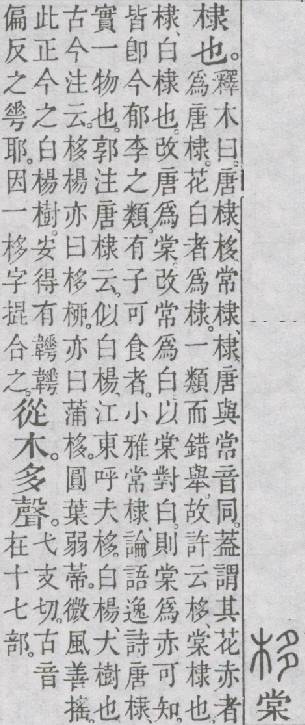 栘棠
棣也。釋木曰。唐棣、栘。常棣、棣。唐與常音同。葢謂其花赤者
爲唐棣。花白者爲棣。一類而錯舉。故許云栘、棠棣也。
棣、白棣也。改唐爲棠。改常爲白。以棠對白。則棠爲赤可知。
皆卽今郁李之類。有子可食者。小雅常棣、論語逸詩唐棣、
實一物也。郭注唐棣云。似白楊、江東呼夫栘。白楊、大樹也。
古今注云。栘楊亦曰栘桺。亦曰蒲栘。圓葉弱蔕。微風善搖。
此正今之白楊樹。安得有韡韡
偏反之𠌶耶。因一栘字掍合之。
從木。多聲。弋支切。古音
在十七部。